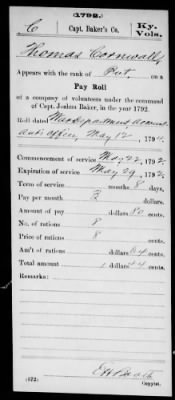 (1792.)
C Capt. Baker's Co. Ky. Vols.
Thomas Cornwall,
Appears with the rank of Pvt. on a
Pay Roll
of a company of volunteers under the command
of Capt. Joshua Baker, in the year 1792.
Roll dated War Department Account
ant's Office, May 12, 1794.
Commencement of service May 22, 1792.
Expiration of service May 29, 1792.
Term of service months 8 days.
Pay per month 3 dollars cents.
Amount of pay dollars 80 cents.
No. of rations 8
Price of rations 8 cents.
Am't of rations dollars 64 cents.
Total amount 1 dollars 44 cents.
Remarks:
(572)
Copyist.